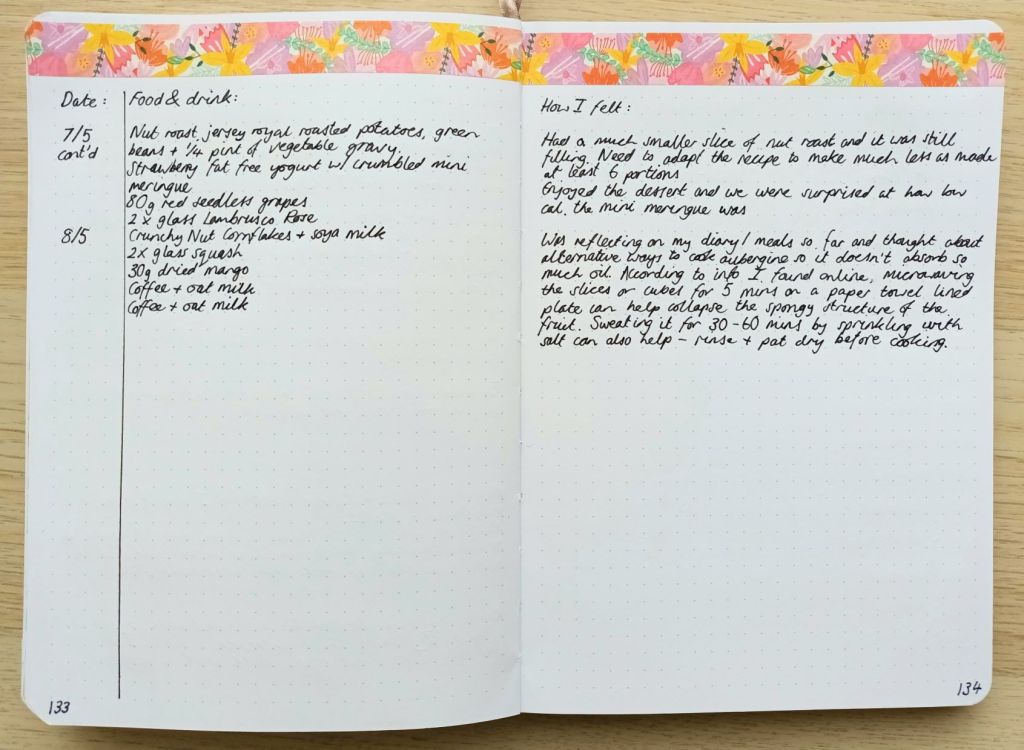 Date:
Food & drink:
7/5
cont'd
Nut roast, jersey royal roasted potatoes, green
beans + 1/4 pint of vegetable gravy.
Strawberry fat free yogurt w/ crumbled mini
meringue
80g red seedless grapes
2 x glass Lambrusco Rose
8/5
Crunchy Nut Cornflakes + soya milk
2 x glass squash
30g dried mango
Coffee + oat milk
Coffee + oat milk
133
How I felt:
Had a much smaller slice of nut roast and it was still
filling. Need to adapt the recipe to make much less as made
at least 6 portions
Enjoyed the dessert and we were surprised at how low
cal. the mini meringue was
Was reflecting on my diary/meals so far and thought about
alternative ways to cook aubergine so it doesn't absorb so
much oil. According to info I found online, microwaving
the slices or cubes for 5 mins on a paper towel lined
plate can help collapse the spongy structure of the
fruit. Sweating it for 30-60 mins by sprinkling with
salt can also help - rinse + pat dry before cooking.
134